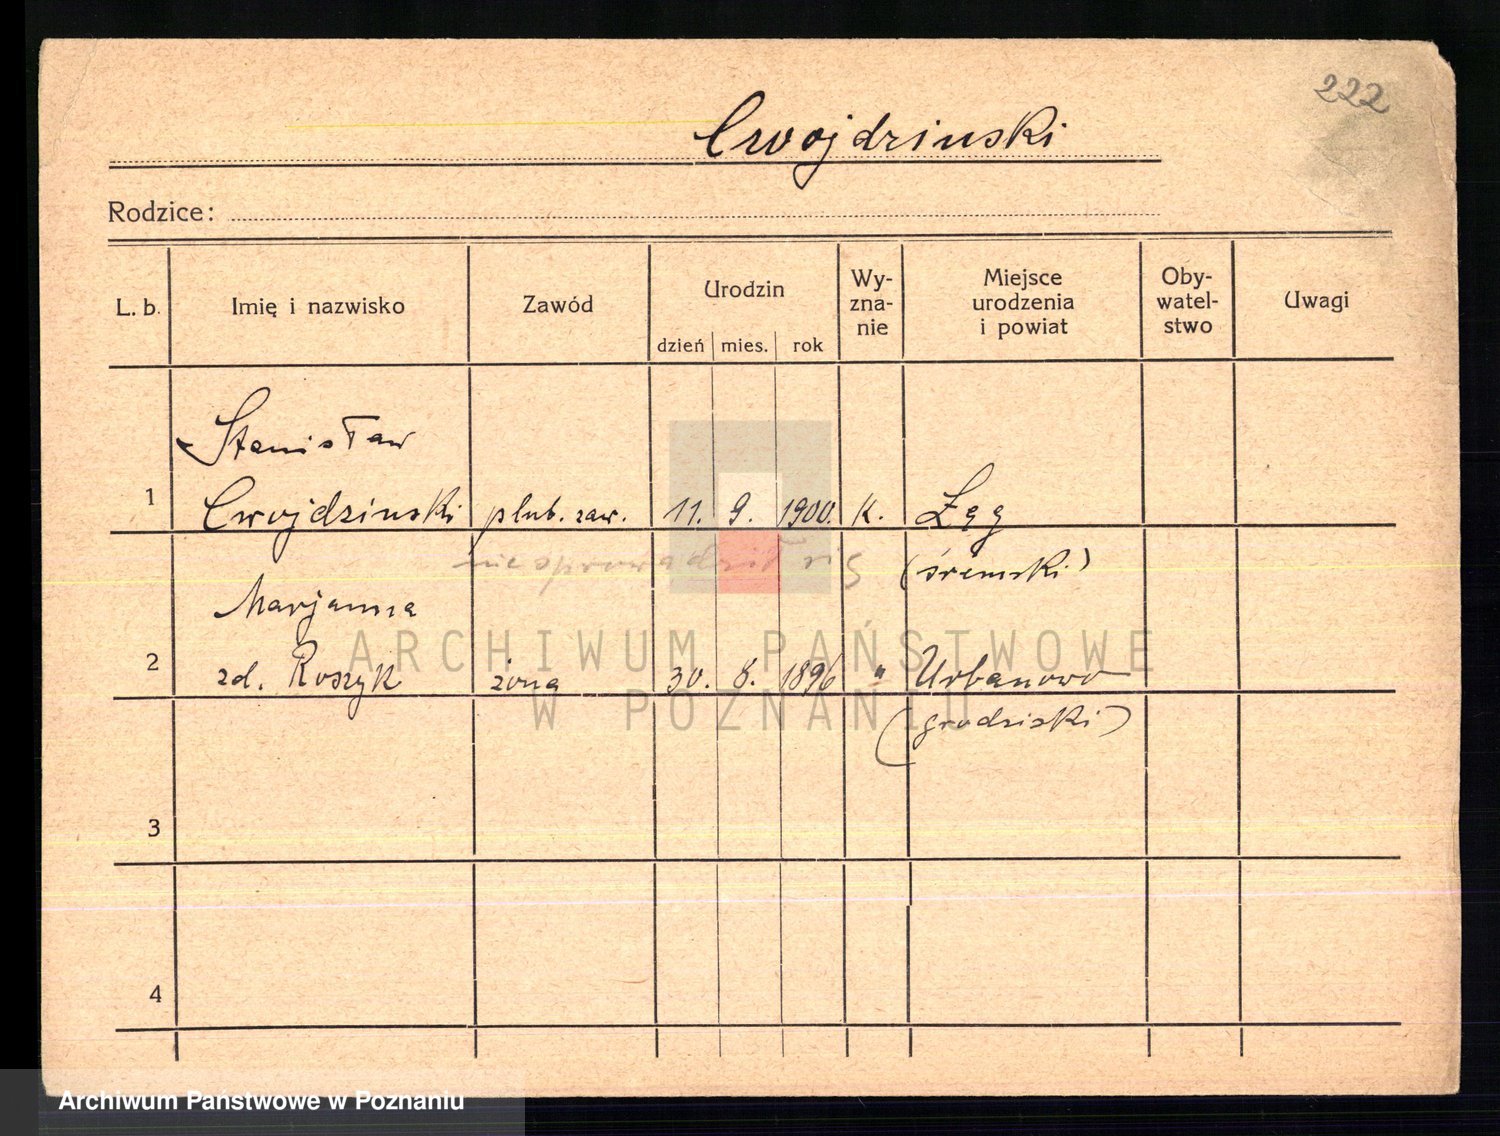 222
Cwojdziński
Rodzice:
L. b. Imię i nazwisko Zawód Urodzin dzień mies. rok Wy-zna-nie Miejsce urodzenia i powiat Oby-watel-stwo Uwagi
Stanisław
1 Cwojdzinski plut. zaw. 11. 9. 1900. K. Łęg
nie sprowadził się (śremski)
Marjanna
2 zd. Roszyk żona 30. 8. 1896 " Urbanowo
(grodziski)
3
4
ARCHIWUM PAŃSTWOWE
W POZNANIU
Archiwum Państwowe w Poznaniu